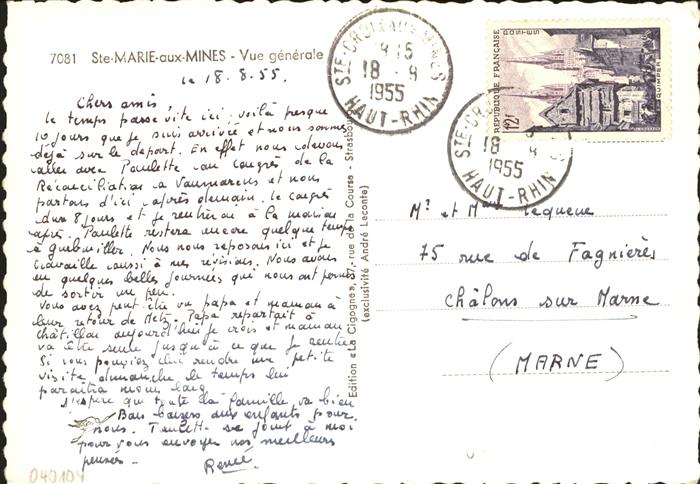 7081 Ste-MARIE-aux-MINES - Vue générale
le 18.8.55.
Chers amis
Le temps passe vite ici, voilà presque
10 jours que je suis arrivée et nous sommes
déjà sur le départ. En effet nous devons
aller avec Paulette au Congrès de la
Réconciliation à Vaumarcus et nous
partons d'ici après demain. Le Congrès
dure 8 jours et je rentrerai à la maison
après. Paulette restera encore quelque temps
à Guebwiller. Nous nous reposons ici et je
travaille aussi à mes révisions. Nous avons
eu quelques belles journées qui nous ont permis
de sortir un peu.
Vous avez peut être vu papa et maman à
leur retour de Metz. Papa repartait à
Châtillon aujourd'hui je crois et maman
va être seule jusqu'à ce que je rentre
Si vous pouviez lui rendre une petite
visite dimanche le temps lui
paraîtra moins long.
J'espère que toute la famille va bien
Bons baisers aux enfants pour
nous. se joint à moi
pour vous envoyer nos meilleurs
pensées.
Renée
040104
Edition «La Cigogne», rue de la Course - Strasbourg
(exclusivité André Leconte)
STE-CROIX-AUX-MINES
18 - 9
1955
HAUT-RHIN
REPUBLIQUE FRANÇAISE
POSTES
QUIMPER
12F
STE-CROIX
18 - 9
1955
HAUT-RHIN
Mr et Mme Lequeux
75 rue de Fagnières
Châlons sur Marne
(MARNE)